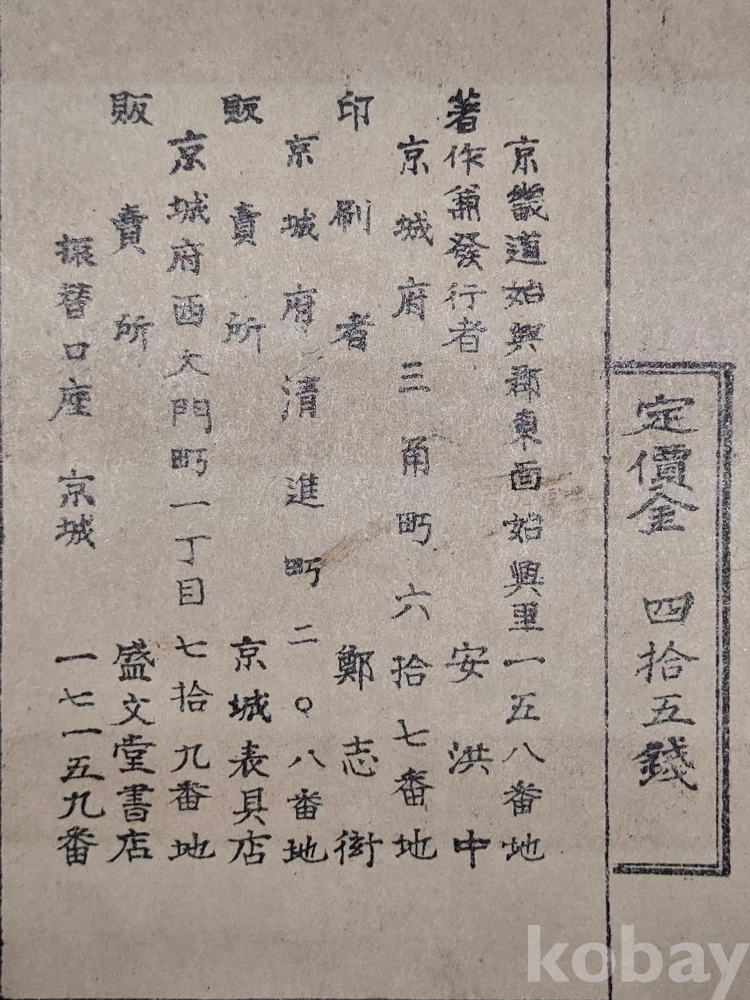 定價金 四拾五錢
京畿道始興郡東面始興里一五八番地
著作兼發行者 安洪中
京城府三角町六拾七番地
印刷者 鄭志衘
京城府清進町二〇八番地
販賣所 京城表具店
京城府西大門町一丁目七拾九番地
販賣所 盛文堂書店
振替口座京城 一七一五九番
kobay